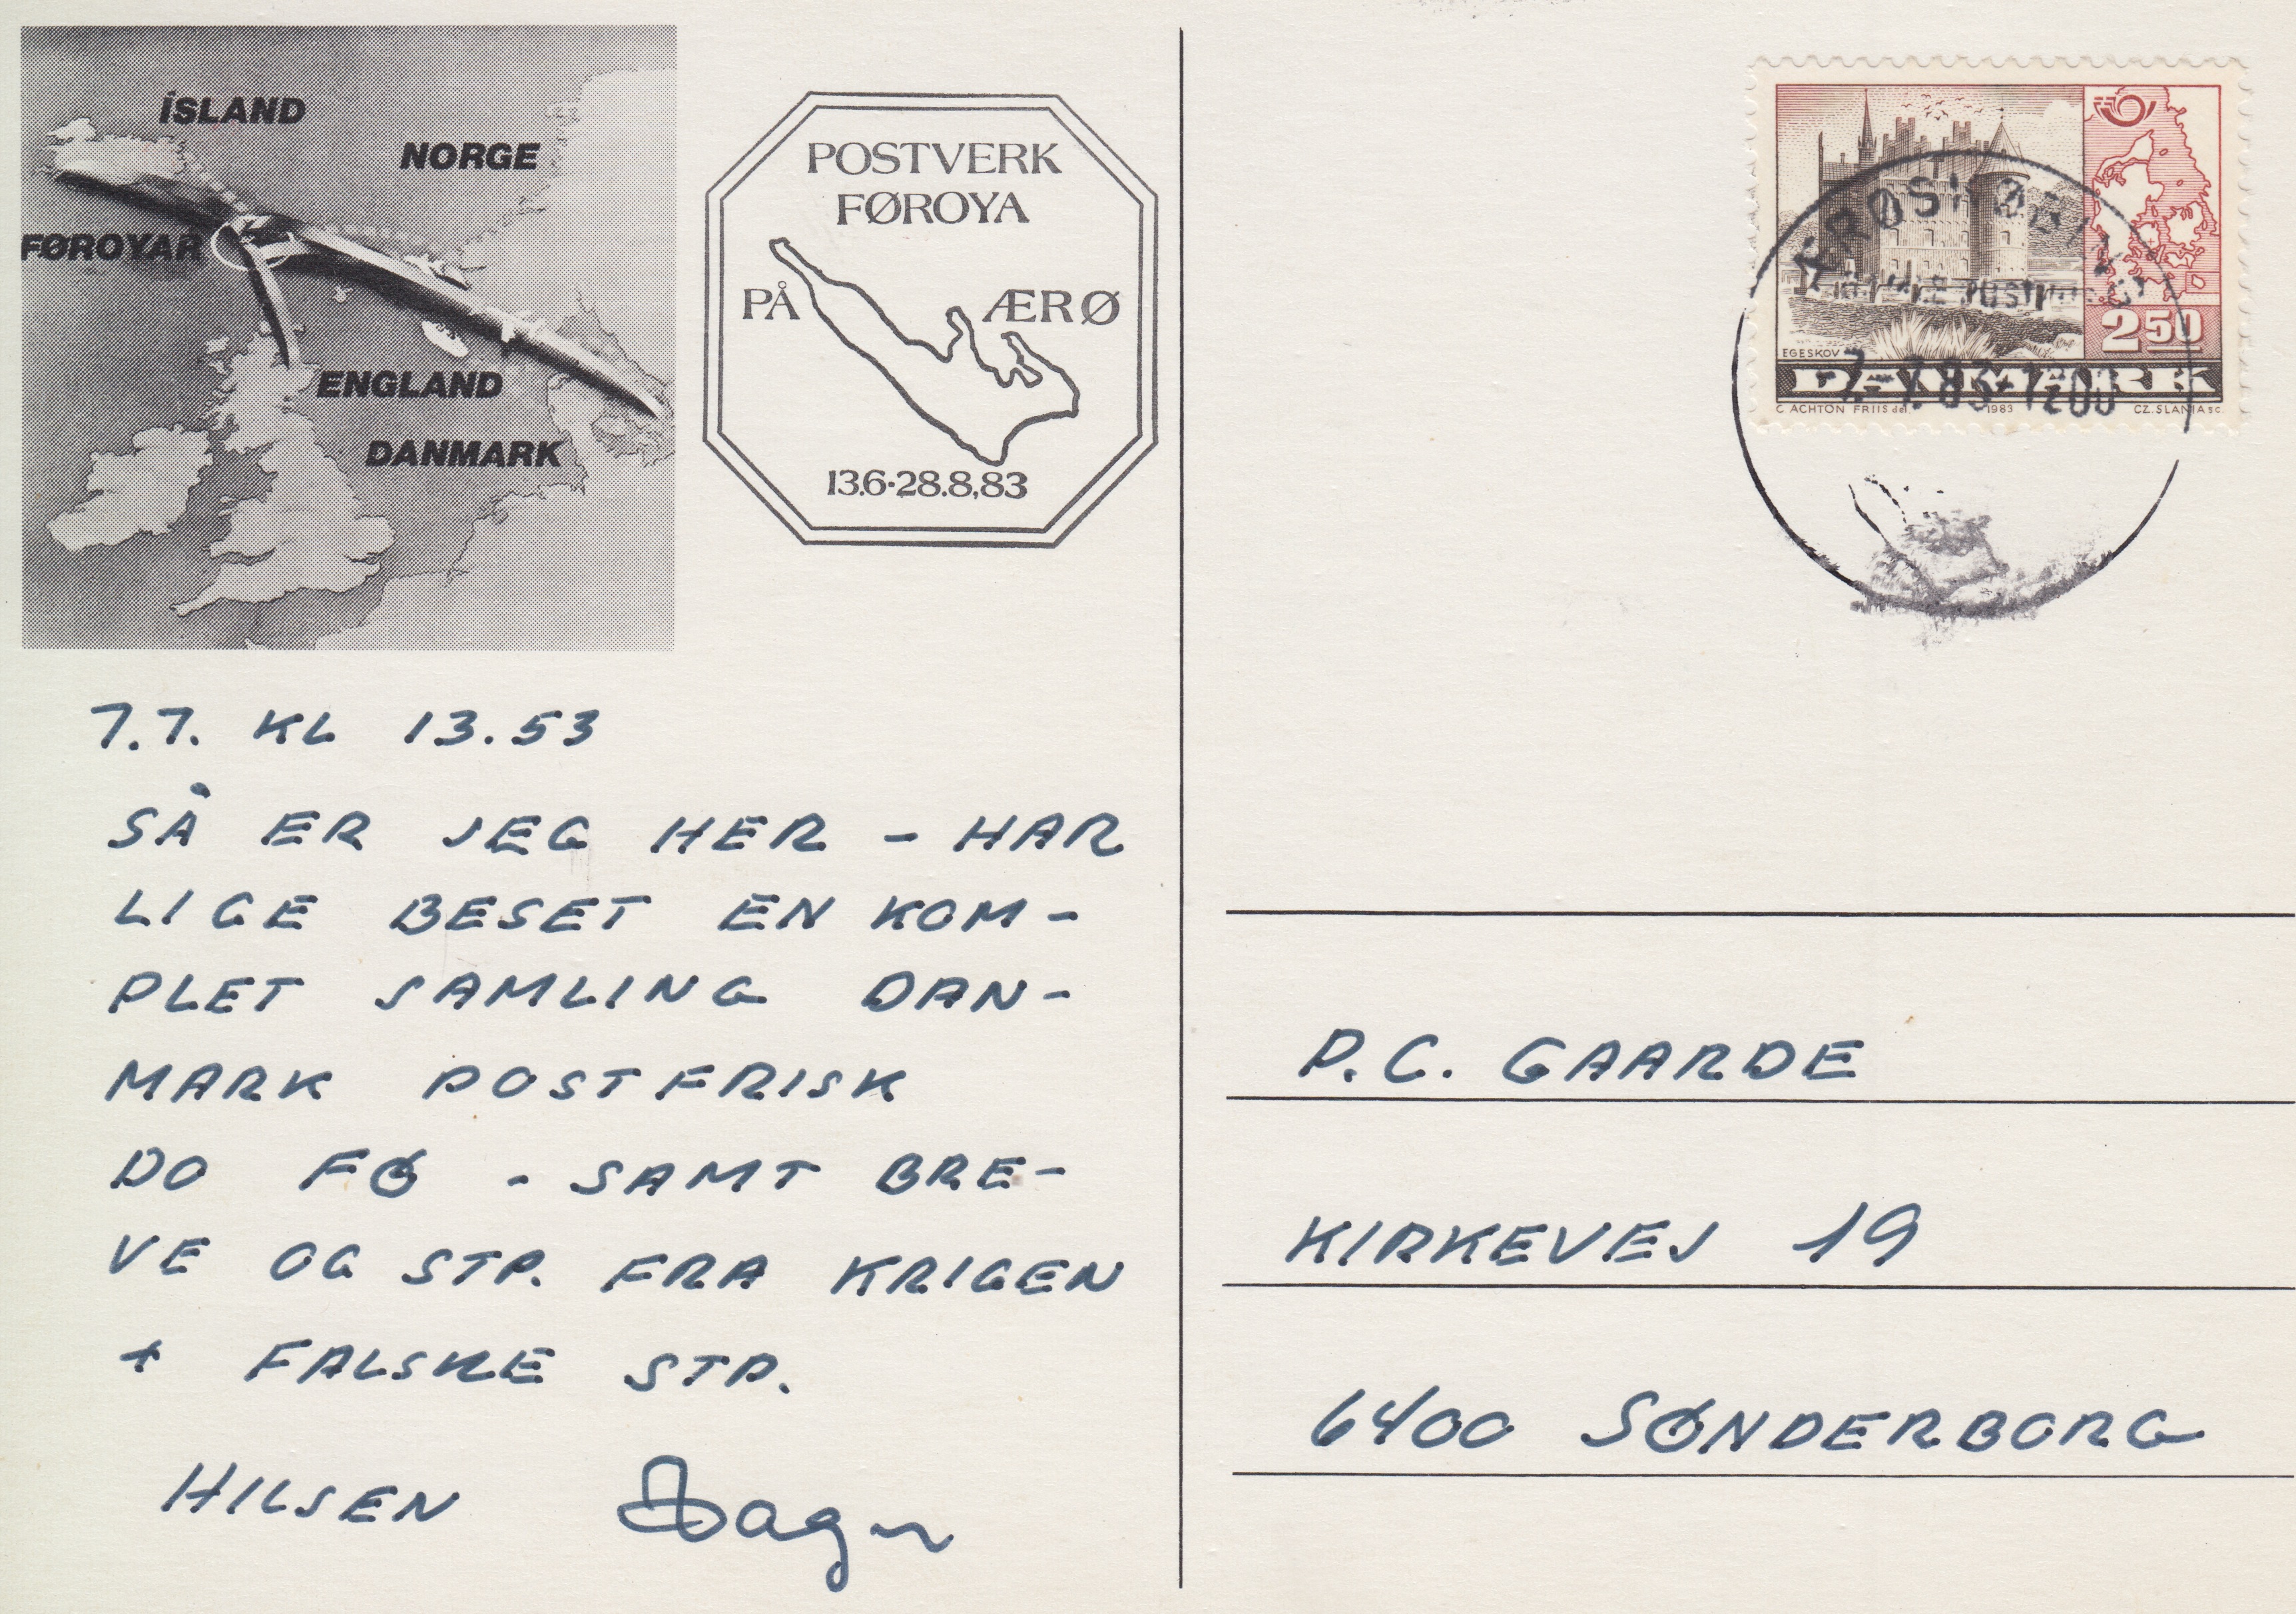 ÍSLAND
NORGE
FØROYAR
ENGLAND
DANMARK
POSTVERK
FØROYA
PÅ ÆRØ
13.6·28.8,83
7.7. KL 13.53
SÅ ER JEG HER - HAR
LIGE BESET EN KOM-
PLET SAMLING DAN-
MARK POSTFRISK
DO FØ - SAMT BRE-
VE OG STP. FRA KRIGEN
+ FALSKE STP.
HILSEN
EGESKOV
2 50
DANMARK
C. ACHTON FRIIS del. 1983 CZ. SLANIA sc.
ÆRØSKØBING
P.C. GAARDE
KIRKEVEJ 19
6400 SØNDERBORG